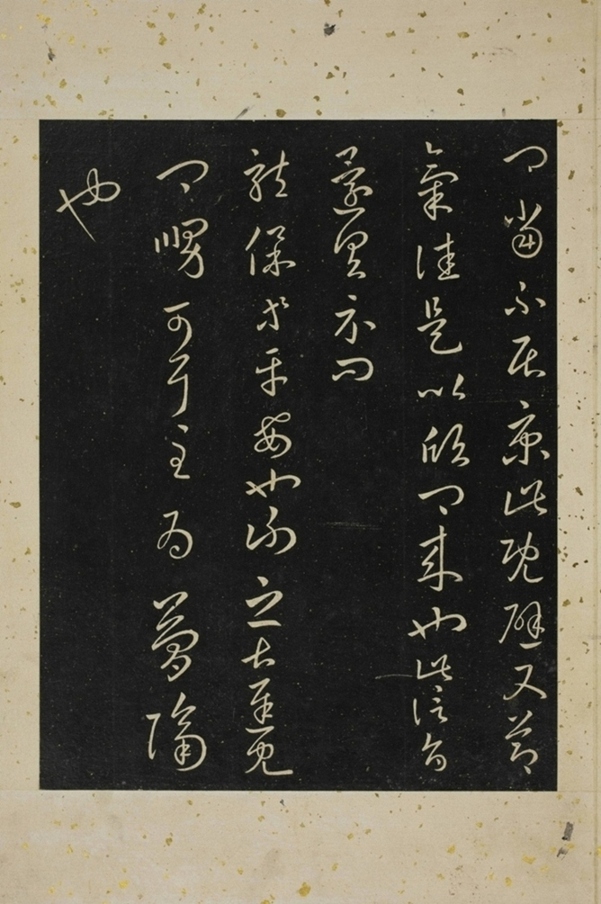 卿當不居京此既避又節
氣佳是以欣卿來也此信旨
還具示問
龍保等平安也謝之甚遲見
卿舅可耳至為簡隔
也